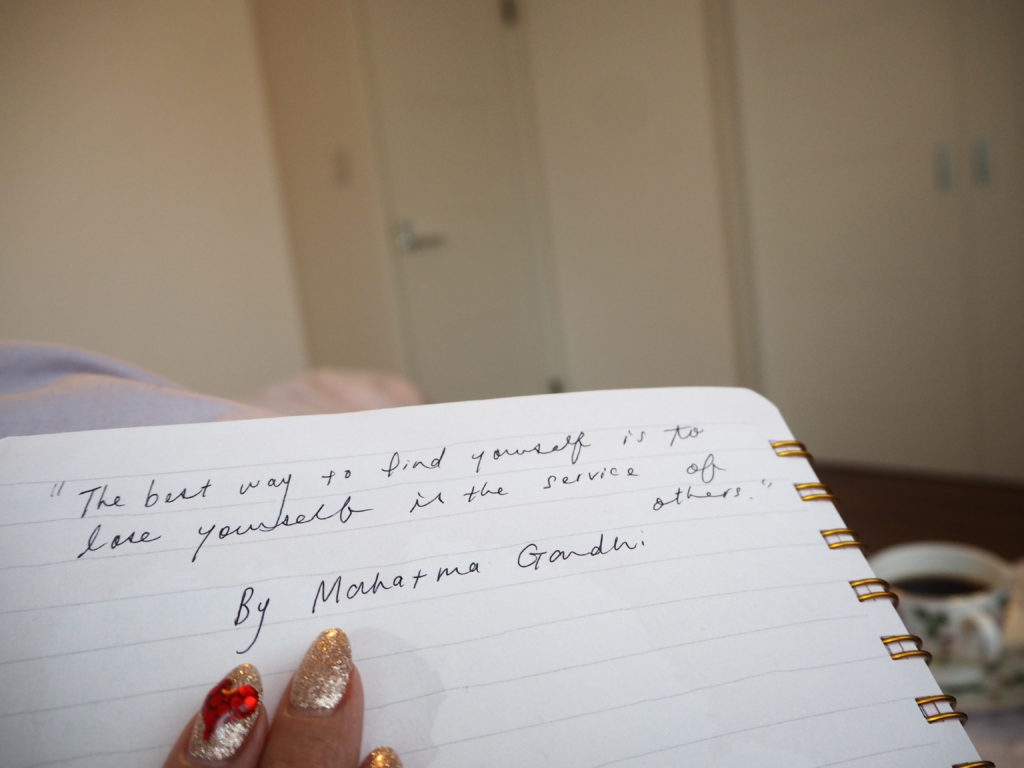 "The best way to find yourself is to
lose yourself in the service of
others."
By Mahatma Gandhi